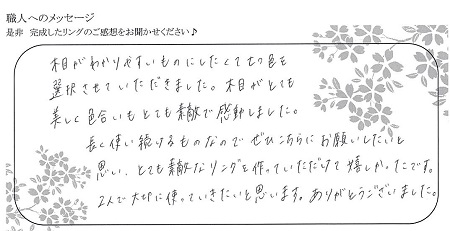 職人へのメッセージ
是非 完成したリングのご感想をお聞かせください♪
木目がわかりやすいものにしたくて七つ色を
選択させていただきました。木目がとても
美しく色合いもとても素敵で感動しました。
長く使い続けるものなので ぜひこちらに お願いしたいと
思い、とても素敵なリングを作っていただけて 嬉しかったです。
2人で大切に使っていきたいと思います。ありがとうございました。